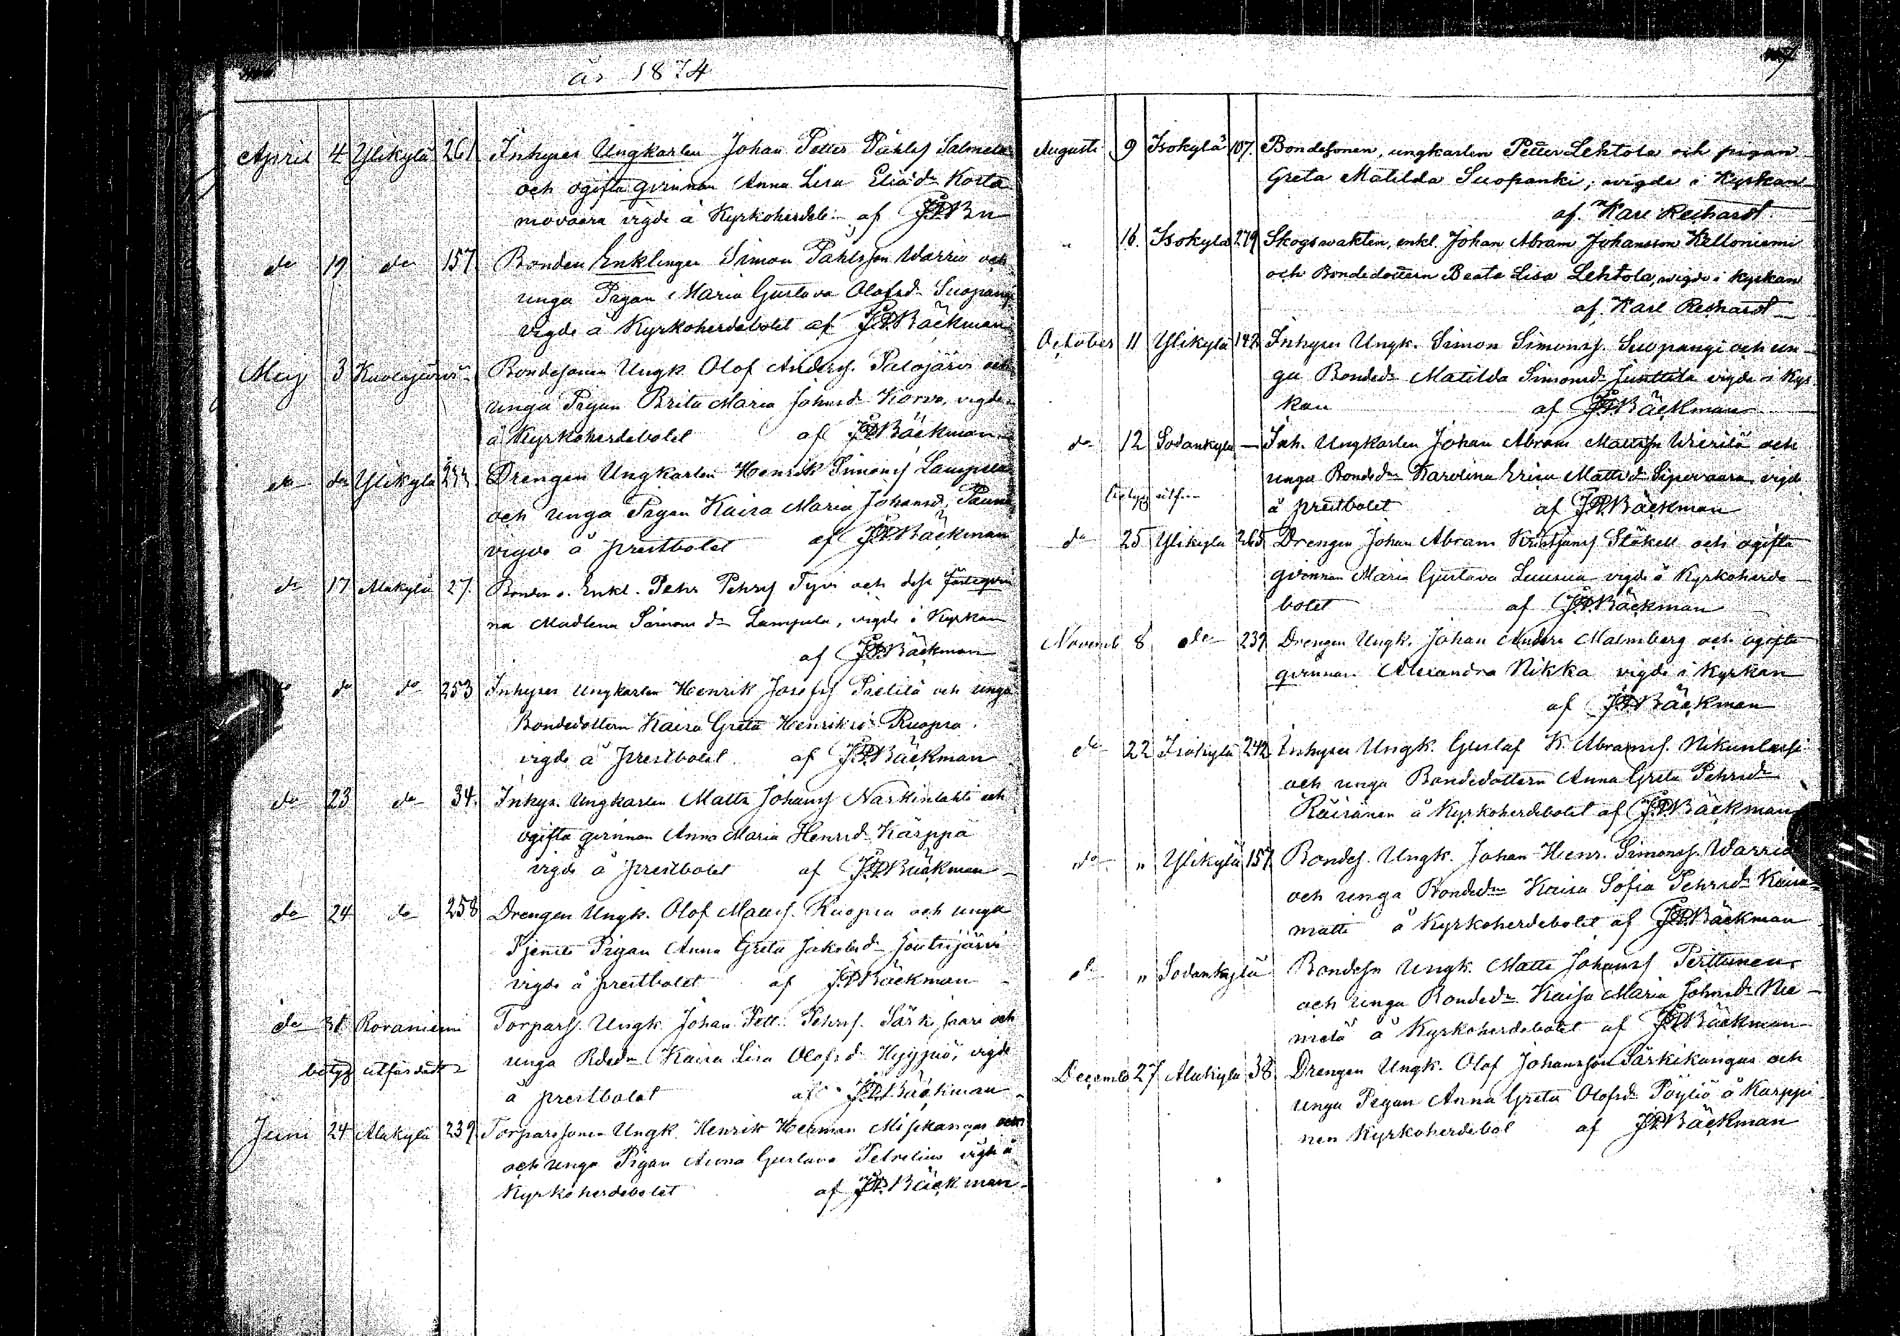 år 1874
April 4 Ylikylä 261 Inhyses Ungkarlen Johan Petter Påhlss Salmela
och ogifta qvinnan Anna Lisa Eliæd: Kosta
movaara vigde å Kyrkoherdeb: af JPBn
do 19 do 157 Bonden Enklingen Simon Påhlsson Warrio och
unga Pigan Maria Gustava Olofsd. Suopangi
vigde å Kyrkoherdebolet af JPBäckman
Maij 3 Kuolajärvi - Bondesonen Ungk Olof Anderss. Palojärvi och
unga Pigan Brita Maria Johansd Korva, vigde
å Kyrkoherdebolet af JPBäckman
do do Ylikylä Drengen Ungkarlen Henrik Simonss Lampela
och unga Pigan Kaisa Maria Johansd.
vigde å prestbolet af JPBäckman
do 17 Alakylä 27. Bonden o. Enkl. Pehr Pehrss och dess
na Madlena Simons dr Lampela, vigde i Kyrkan
af JPBäckman
do do do 253 Inhyses Ungkarlen Henrik Josefss och unga
Bondedottern Kaisa Greta Henriksd. Ruopsa
vigde å prestbolet af JPBäckman
do 23 do 34. Inhys. Ungkarlen Matts Johanss Narkinlahti och
ogifta qvinnan Anna Maria Henrsd Kärppä
vigde å prestbolet af JPBäckman
do 24 do 258 Drengen Ungk. Olof Mattss. Ruopsa och unga
Tjenste Pigan Anna Greta Jakobsd Joutsijärvi
vigde å prestbolet af JPBäckman
do 31 Rovaniemi Torparss. Ungk. Johan Pett. Pehrss. och
unga Bdedr Kaisa Lisa Olofsd Hyypiö, vigde
betyg utfärdadt
å prestbolet af JPBäckman
Juni 24 Alakylä 239. Torparesonen Ungk. Henrik Herman Misikangas
och unga Pigan Anna Gustava Petrelius vigde å
Kyrkoherdebolet af JPBäckman
Augusti 9 Isokylä 107. Bondesonen, ungkarlen Petter Lehtola och pigan
Greta Matilda Suopanki; vigde i Kyrkan
af Karl Rechardt
" 16. Isokylä 279 Skogsvakten, enkl. Johan Abram Johansson Kelloniemi
och Bondedottern Beata Lisa Lehtola, vigde i Kyrkan
af Karl Rechardt
October 11 Ylikylä 142 Inhyses Ungk. Simon Simonss. Suopangi och un-
ga Bonded: Matilda Simonsd Junttila vigde i Kyr
kan af JPBäckman
do 12 Sodankylä - Inh. Ungkarlen Johan Abram Mattss och
unga Bondedr Karolina Erica Mattsd Sipovaara, vigd.
betyg utf.
å prestbolet af JPBäckman
do 25 Ylikylä 265 Drengen Johan Abram Stökell och ogifta
qvinnan Maria Gustava Luusua vigde å Kyrkoherde
bolet af JPBäckman
Novemb 8 do 239 Drengen Ungk. Johan Anders Malmberg och ogifta
qvinnan Alexandra Nikka vigde i Kyrkan
af JPBäckman
do 22 Isokylä 242 Inhyses Ungk. Gustaf K. Abramss. Nikunlassi
och unga Bondedottern Anna Greta Pehrsdr
Räisänen å Kyrkoherdebolet af JPBäckman
do " Ylikylä 157 Bondes. Ungk. Johan Henr. Simonss. Warrio
och unga Bondedr Kaisa Sofia Pehrsdr Kaisa-
matti å Kyrkoherdebolet af JPBäckman
do " Sodankylä Bondesn Ungk. Matts Johanss Perttunen
och unga Bondedr Kaisa Maria Johnsdr Nie-
melä å Kyrkoherdebolet af JPBäckman
Decembr 27 Alakylä 38 Drengen Ungk. Olof Johansson Särkikangas och
unga Pigan Anna Greta Olofsdr Pöyliö å Karppi
nen Kyrkoherdebol af JPBäckman